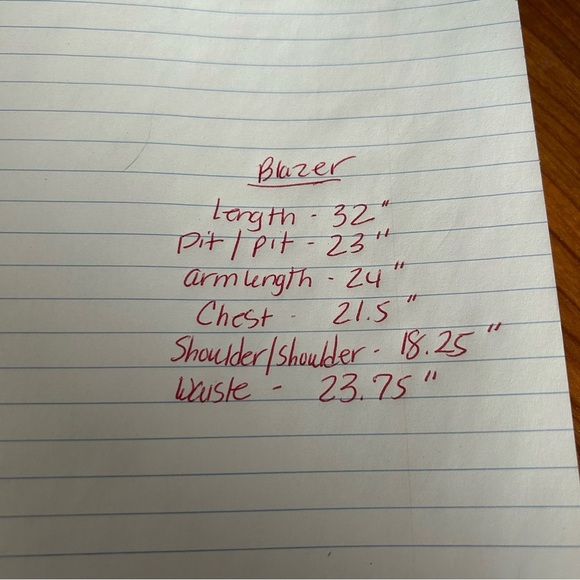 Blazer
Length - 32"
Pit / pit - 23"
armlength - 24"
Chest - 21.5"
Shoulder/shoulder - 18.25"
Waiste - 23.75"